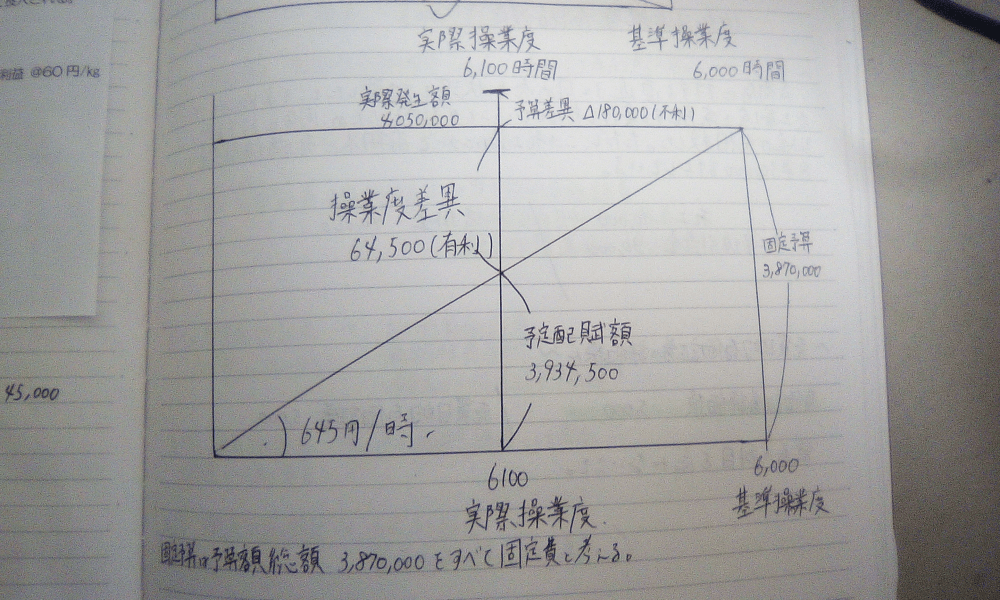 利益 @60円/kg
45,000
実際操業度
基準操業度
6,100時間
6,000時間
実際発生額
4,050,000
予算差異 Δ180,000(不利)
操業度差異
64,500(有利)
固定予算
3,870,000
予定配賦額
3,934,500
645円/時
6100
6,000
実際操業度
基準操業度
固定予算は予算額総額 3,870,000をすべて固定費と考える。